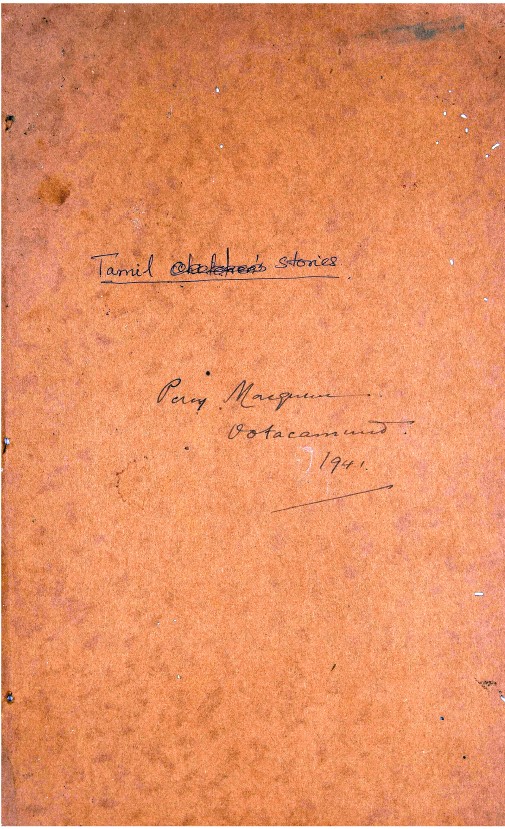 Tamil stories
Percy Macqueen
Ootacamund.
1941.